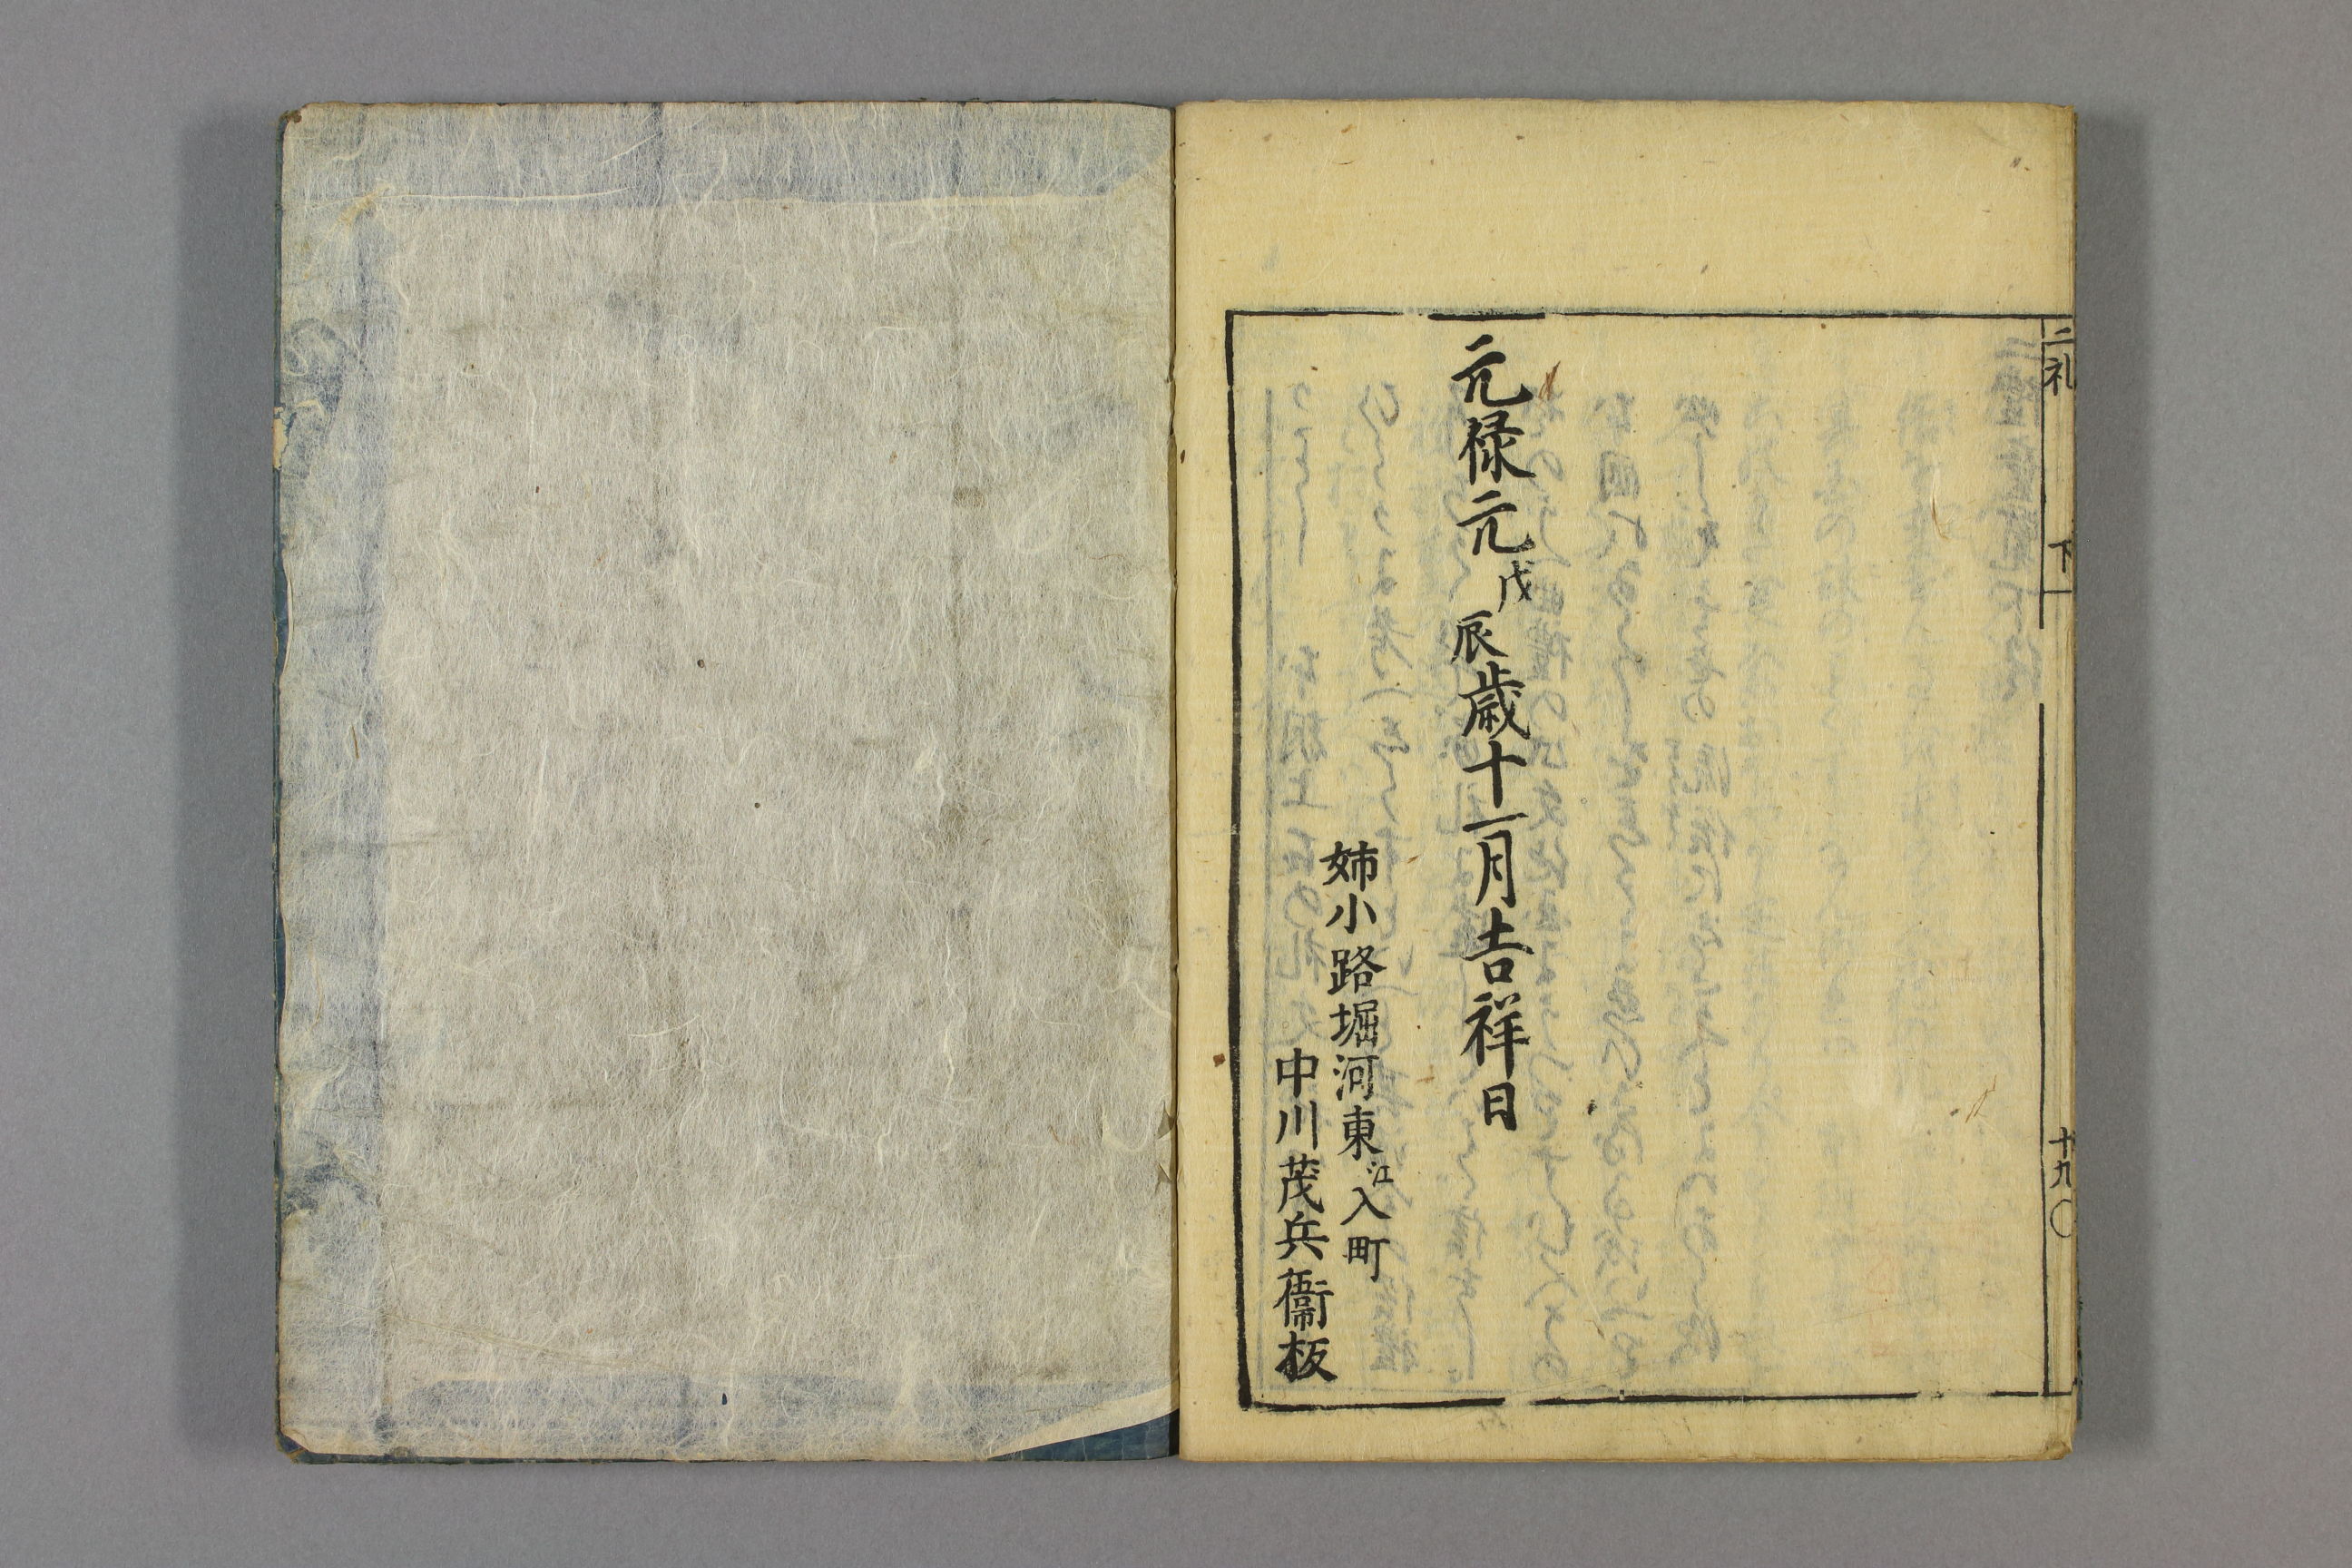 二礼 下一 十九〇
元禄元戊辰歳十一月吉祥日
姉小路堀河東江入町
中川茂兵衞板